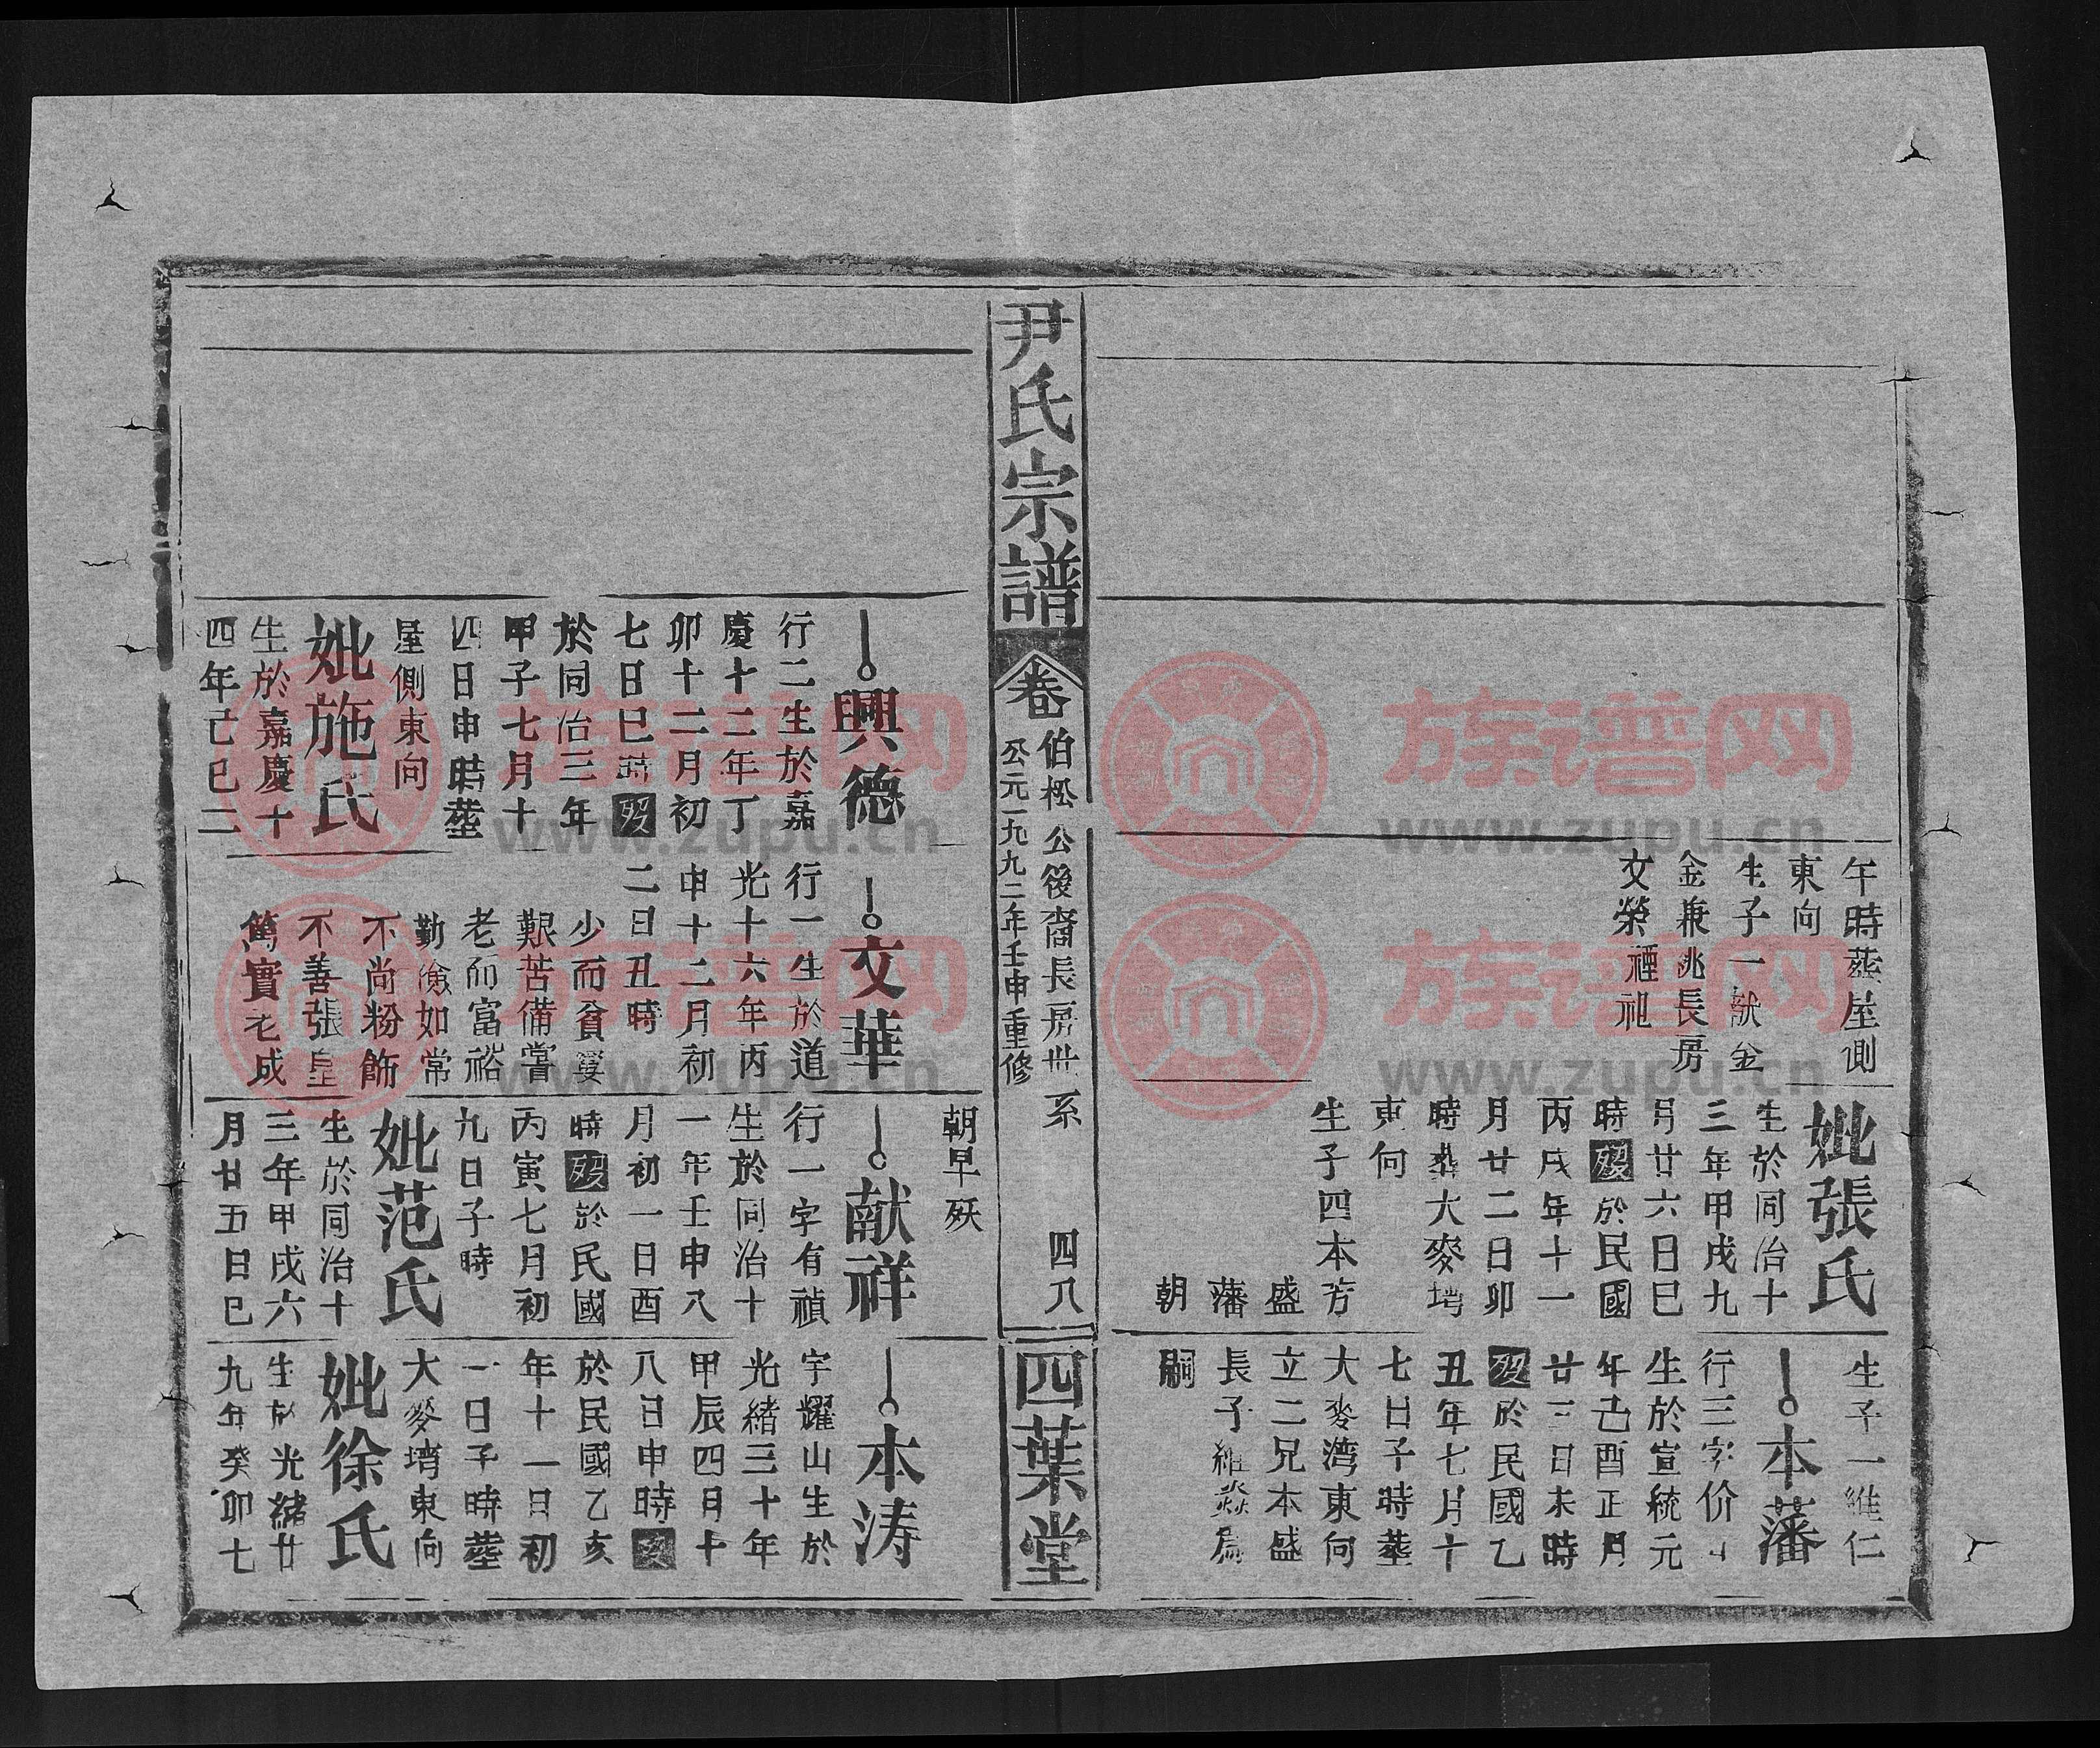 午時葬屋側
東向
生子一献金
金兼祧長房
文榮禋祀
妣張氏
生於同治十
三年甲戌九
月廿六日巳
時殁於民國
丙戌年十一
月廿二日卯
時葬大麥塆
東向
生子四本芳
盛
藩
朝
生子一維仁
本藩
行三字价
生於宣統元
年己酉正月
廿三日未時
殁於民國乙
丑年七月十
七日子時葬
大麥湾東向
立二兄本盛
長子維焱爲
嗣
尹氏宗譜
卷
伯松公後裔長房世系
公元一九九二年壬申重修
四八
四葉堂
興德
行二生於嘉
慶十二年丁
卯十二月初
七日巳時殁
於同治三年
甲子七月十
四日申時葬
屋側東向
妣施氏
生於嘉慶十
四年己巳二
文華
行一生於道
光十六年丙
申十二月初
二日丑時
少而貧窶
艱苦備嘗
老而富裕
勤儉如常
不尚粉飾
不善張皇
篤實老成
朝早殀
献祥
行一字有禎
生於同治十
一年壬申八
月初一日酉
時殁於民國
丙寅七月初
九日子時
妣范氏
生於同治十
三年甲戌六
月廿五日巳
本涛
字耀山生於
光緒三十年
甲辰四月十
八日申時殁
於民國乙亥
年十一日初
一日子時葬
大麥塆東向
妣徐氏
生於光緒廿
九年癸卯七
族谱网
www.zupu.cn
族谱网
www.zupu.cn
族谱网
www.zupu.cn
族谱网
www.zupu.cn